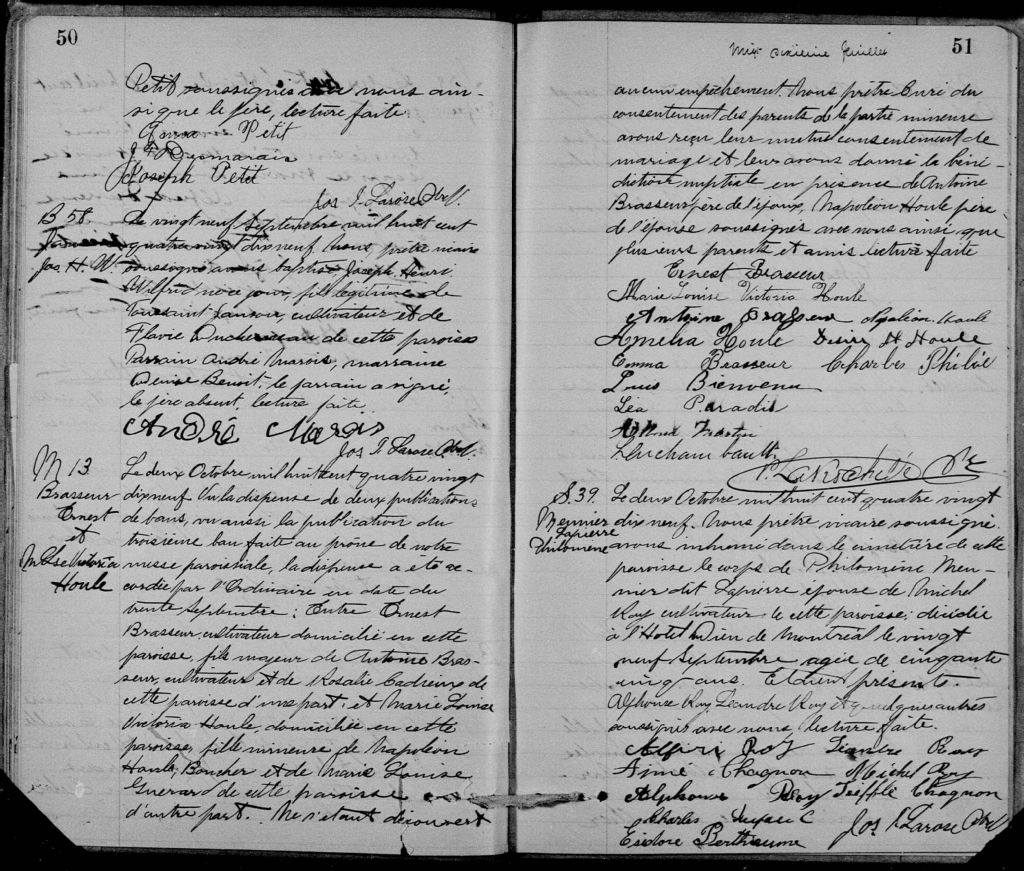 50
Petit soussignés avec nous ain-
si que le père, lecture faite
Petit
J. Desmarais
Joseph Petit
Jos J. Larose Ptre V.
B 58.
Jos. H. W.
Le vingt neuf Septembre mil huit cent
quatre vingt dix neuf Nous, prêtre vicaire
soussigné avons baptisé Joseph, Henri
Wilfrid né ce jour, fils légitime de
Toussaint cultivateur et de
Flavie de cette paroisse
Parrain André Marois, marraine
Denise Benoit, le parrain a signé,
le père absent, lecture faite.
André Marois
Jos J. Larose Ptre V.
M 13
Brasseur
Ernest
et
M. Lse Victoria
Houle
Le deux Octobre mil huit cent quatre vingt
dix neuf. Vu la dispense de deux publications
de bans, vu aussi la publication du
troisième ban faite au prône de notre
messe paroissiale, la dispense a été ac-
cordée par l'Ordinaire en date du
trente Septembre: Entre Ernest
Brasseur, cultivateur domicilié en cette
paroisse, fils majeur de Antoine Bras-
seur, cultivateur et de Rosalie Cadieux de
cette paroisse d'une part; et Marie Louise
Victoria Houle, domiciliée en cette
paroisse, fille mineure de Napoléon
Houle, Boucher et de Marie Louise
Guerard de cette paroisse
d'autre part. Ne s'étant découvert
51
sixième feuillet
aucun empêchement. Nous prêtre Curé du
consentement des parents de la partie mineure
avons reçu leur mutuel consentement de
mariage et leur avons donné la béné-
diction nuptiale en présence de Antoine
Brasseur père de l'époux, Napoléon Houle père
de l'épouse soussignés avec nous ainsi que
plusieurs parents et amis lecture faite
Ernest Brasseur
Marie Louise Victoria Houle
Antoine Brasseur Napoléon Houle
Amelia Houle H. Houle
Emma Brasseur Charles Philie
Bienvenu
Léa Paradis
P. LaRochelle Ptre
S. 39.
Meunier
Lapierre
Philomène
Le deux Octobre mil huit cent quatre vingt
dix neuf. Nous prêtre vicaire soussigné
avons inhumé dans le cimetière de cette
paroisse le corps de Philomène Meu-
nier dit Lapierre épouse de Michel
Roy cultivateur de cette paroisse, décédée
à l'Hotel Dieu de Montréal le vingt
neuf Septembre agée de cinquante
cinq ans. Etaient présents.
Alphonse Roy, Léandre Roy et quelques autres
soussignés avec nous, lecture faite.
Roy Léandre Roy
Aimé Chagnon Michel Roy
Alphonse Roy Trefflé Chagnon
Charles
Jos J. Larose Ptre V.
Esidore Berthiaume